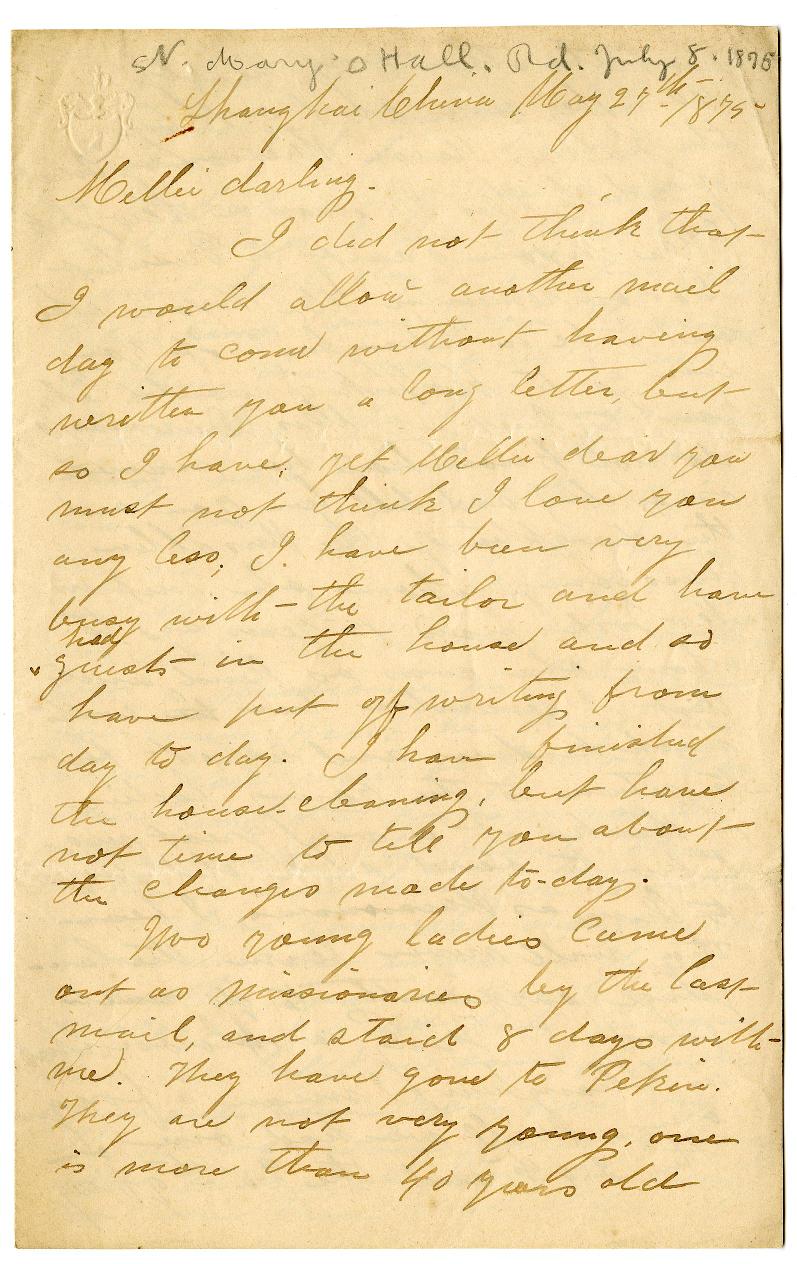 St. Mary's Hall. Rd. July 8. 1875
Shanghai China May 27th/875
Mellie darling.
I did not think that
I would allow another mail
day to come without having
written you a long letter, but
so I have, yet Mellie dear you
must not think I love you
any less, I have been very
busy with the tailor and have
had
guests in the house and so
have put off writing from
day to day. I have finished
the house-cleaning, but have
not time to tell you about
the changes made to-day.
Two young ladies came
out as missionaries by the last
mail, and staid 8 days with
me. They have gone to Pekin.
They are not very young, one
is more than 40 years old